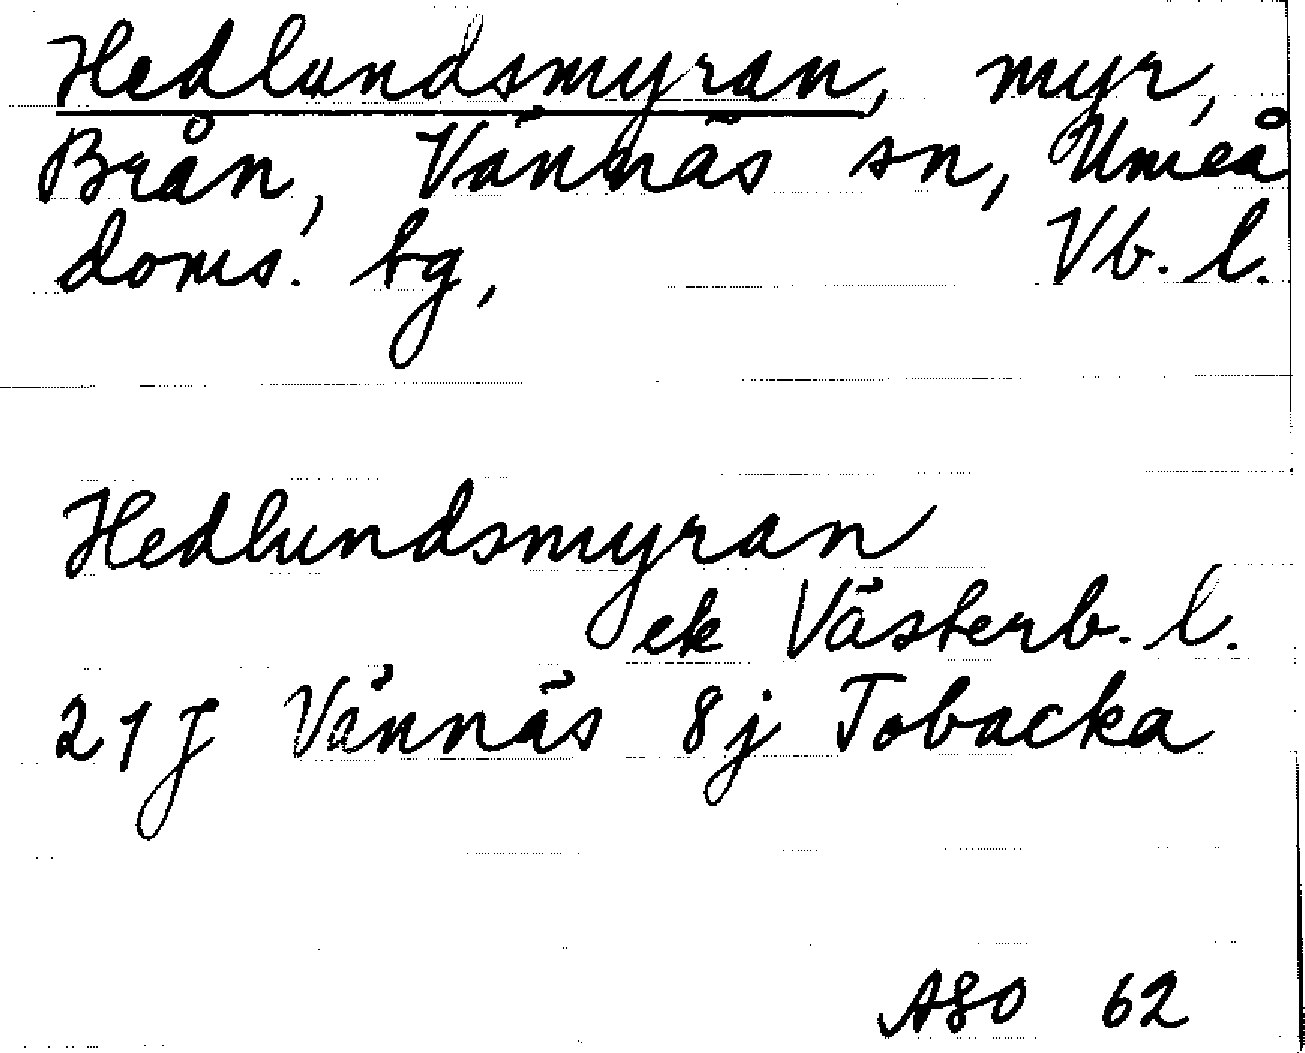 Hedlundsmyran, myr,
Brån, Vännäs sn, Umeå
doms. tg, Vb. l.
Hedlundsmyran
ek Västerb. l.
21J Vännäs 8j Tobacka
ASO 62